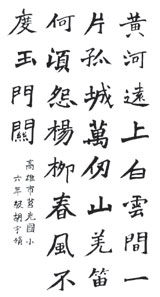 黃河遠上白雲間一
片孤城萬仞山羌笛
何須怨楊柳春風不
度玉門關
高雄市莒光國小
六年級胡于